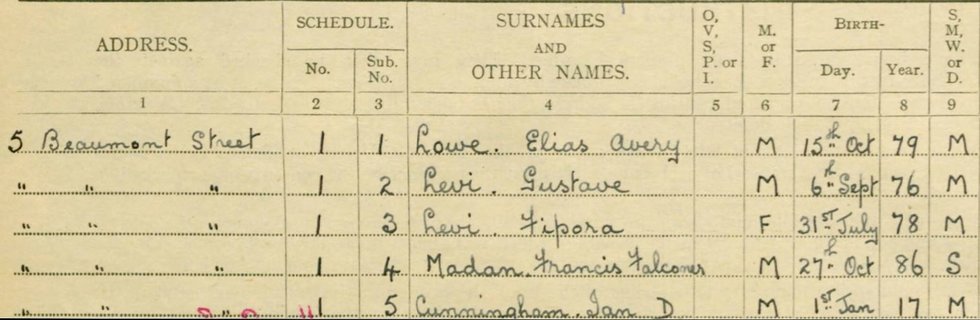 ADDRESS. SCHEDULE. SURNAMES AND OTHER NAMES. O, V, S, P. or I. M. or F. BIRTH- S, M, W. or D.
No. Sub. No. Day. Year.
1 2 3 4 5 6 7 8 9
5 Beaumont Street 1 1 Lowe. Elias Avery M 15th Oct 79 M
" " " 1 2 Levi. Gustave M 6th Sept 76 M
" " " 1 3 Levi. Tipora F 31st July 78 M
" " " 1 4 Madan. Francis Falconer M 27th Oct 86 S
" " " 1 5 Cunningham. Ian D M 1st Jan 17 M